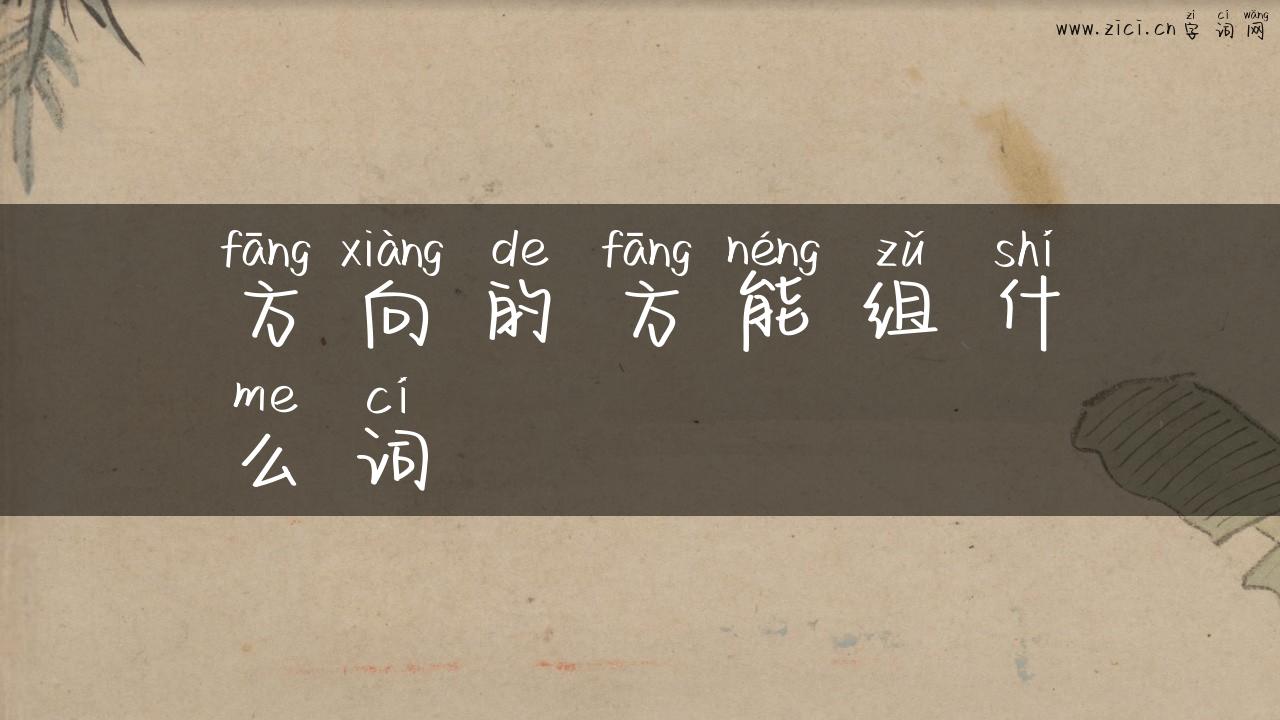 zì cí wǎng
www.zici.cn 字词网
fāng xiàng de fāng néng zǔ shí
方向的方能组什
me cí
么词